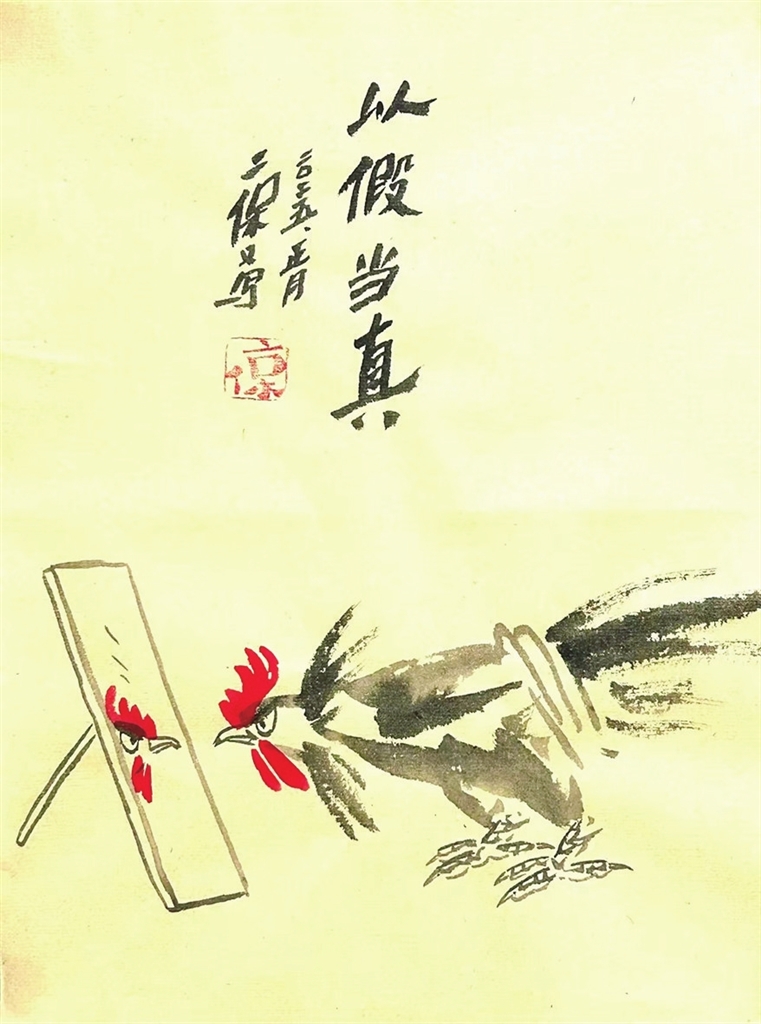 以假当真
二〇二五.正月
二保写